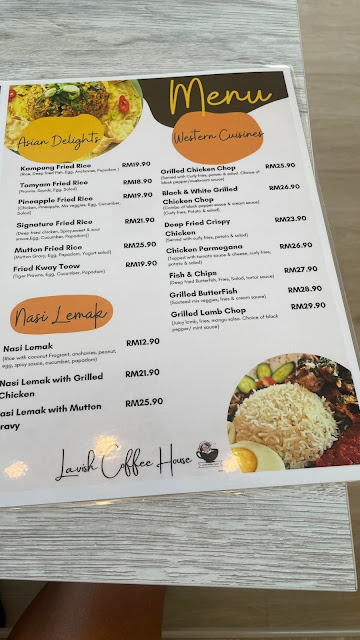 Menu
Asian Delights
Kampung Fried Rice RM19.90
(Rice, Deep Fried Fish, Egg, Anchovies, Papadom )
Tomyam Fried Rice RM18.90
(Prawns, Squids, Egg, Salad)
Pineapple Fried Rice RM19.90
(Chicken, Pineapple, Mix veggies, Egg, Cucumber,
Salad)
Signature Fried Rice RM21.90
(Deep fried chicken, Spicysweet & sour
sauce,Egg, Cucumber, Papadom))
Mutton Fried Rice RM25.90
(Mutton Gravy, Egg, Papadom, Yogurt salad)
Fried Kway Teow RM19.90
(Tiger Prawns, Egg, Cucumber, Papadom)
Nasi Lemak
Nasi Lemak RM12.90
(Rice with coconut Fragrant, anchovies, peanut,
egg, spicy sauce, cucumber, papadom)
Nasi Lemak with Grilled RM21.90
Chicken
asi Lemak with Mutton RM25.90
ravy
Western Cuisines
Grilled Chicken Chop RM25.90
(Served with Curly fries, potato & salad. Choice of
black pepper/mushroom sauce)
Black & White Grilled RM26.90
Chicken Chop
(Combo of black pepper sauce & cream sauce)
(Curly fries, Potato & salad)
Deep Fried Crispy RM23.90
Chicken
(Served with curly fries, potato & salad)
Chicken Parmegana RM26.90
(Topped with tomato sauce & cheese, curly fries,
potato & salad)
Fish & Chips RM27.90
(Deep fried Butterfish, Fries, Salad, tartar sauce)
Grilled ButterFish RM28.90
(Sauteed mix veggies, fries & cream sauce)
Grilled Lamb Chop RM29.90
(Juicy lamb, fries, mango salsa. Choice of black
pepper/ mint sauce)
Lavish Coffee House